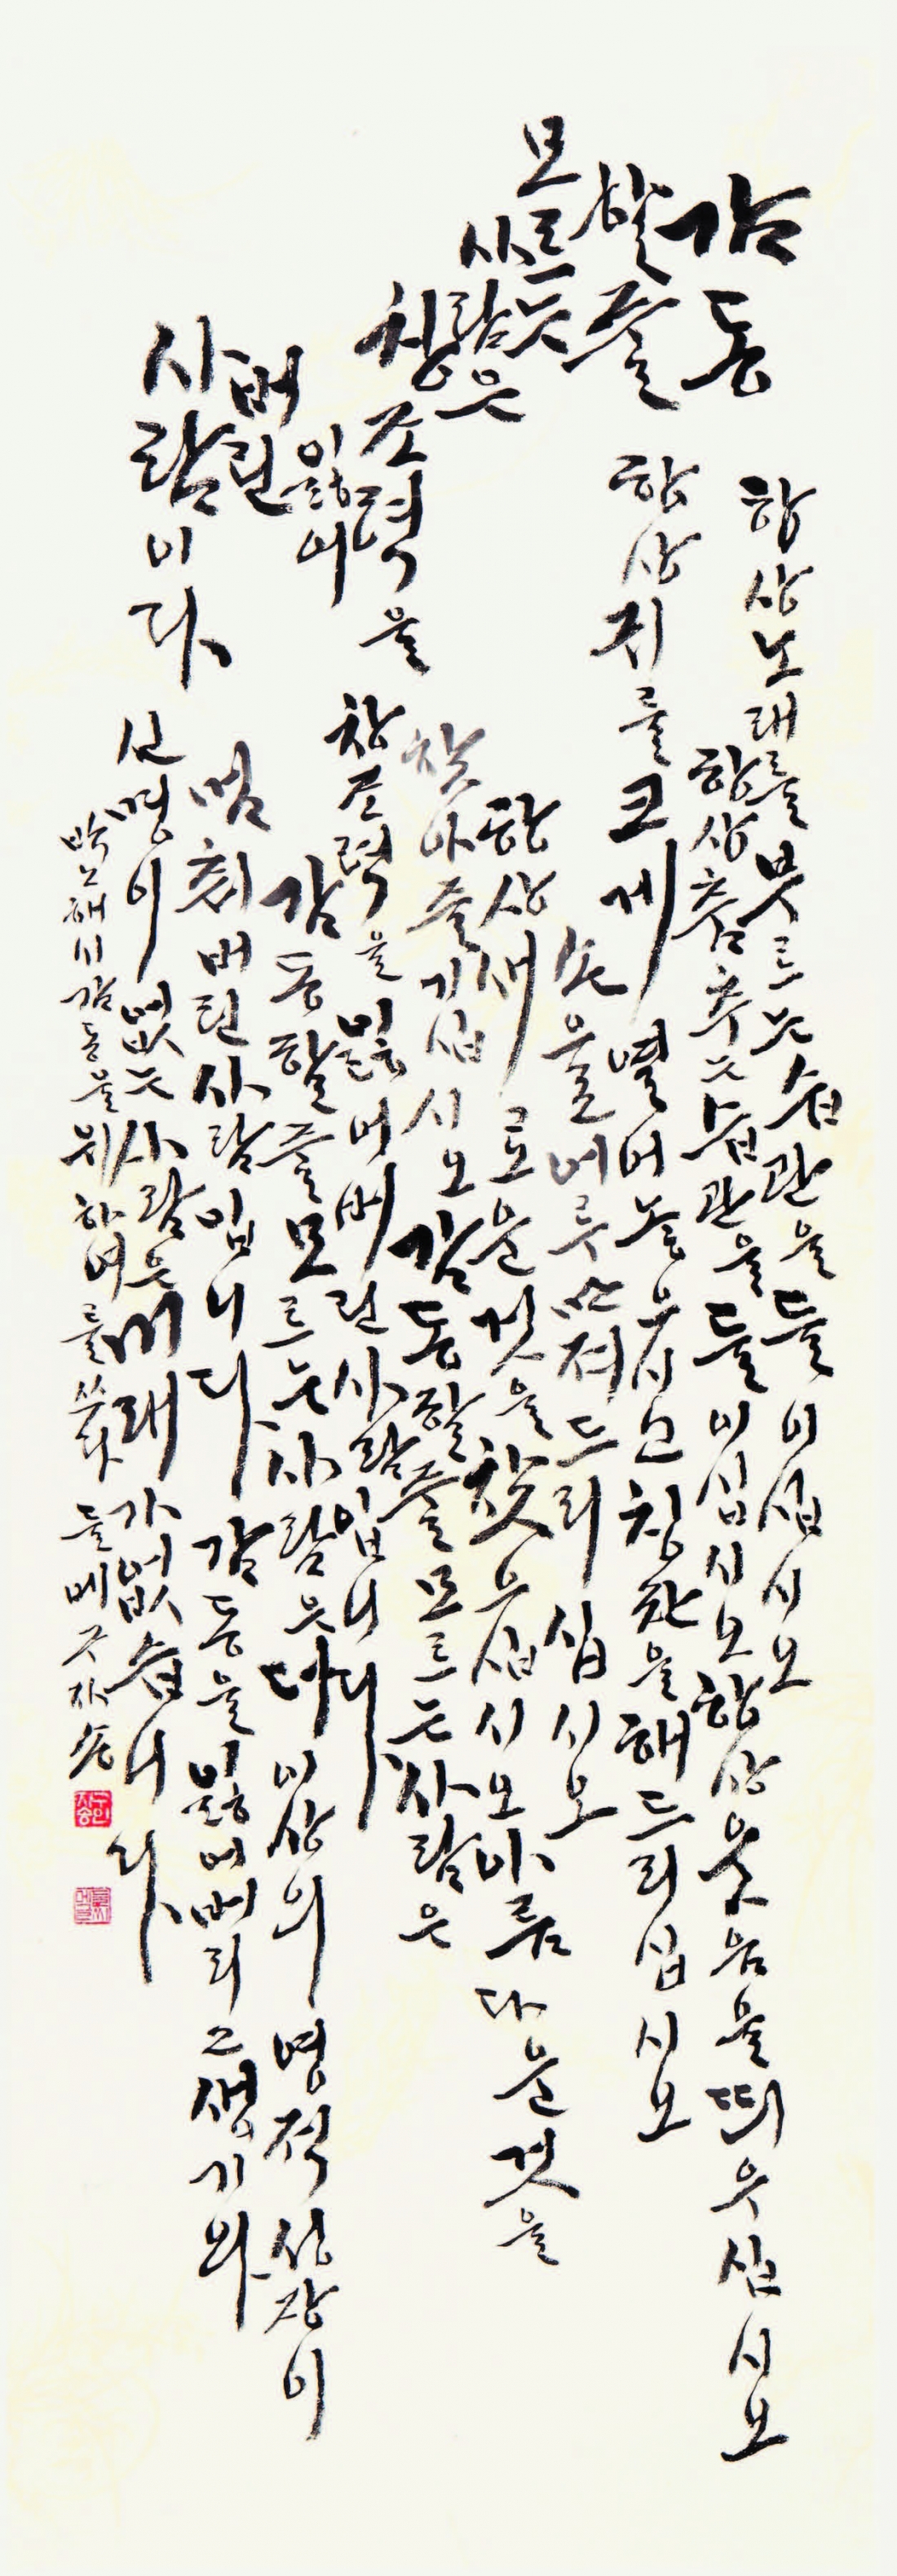 감동
할줄
모르는
사람은
창조력을
잃어
버린
사람이다
항상 노래를 부르는 습관을 들이십시오
항상 춤추는 습관을 들이십시오 항상 웃음을 띄우십시오
항상 귀를 크게 열어 놓으시고 칭찬을 해 드리십시오
손을 어루만져 드리십시오
항상 새로운 것을 찾으십시오 아름다운 것을
찾아 즐기십시오 감동할줄 모르는 사람은
창조력을 잃어버린 사람입니다
감동할줄 모르는 사람은 더 이상의 영적 성장이
멈춰버린 사람입니다 감동을 잃어버리고 생기와
신명이 없는 사람은 미래가 없습니다
박노해시 감동을 위하여를 쓰다 들메